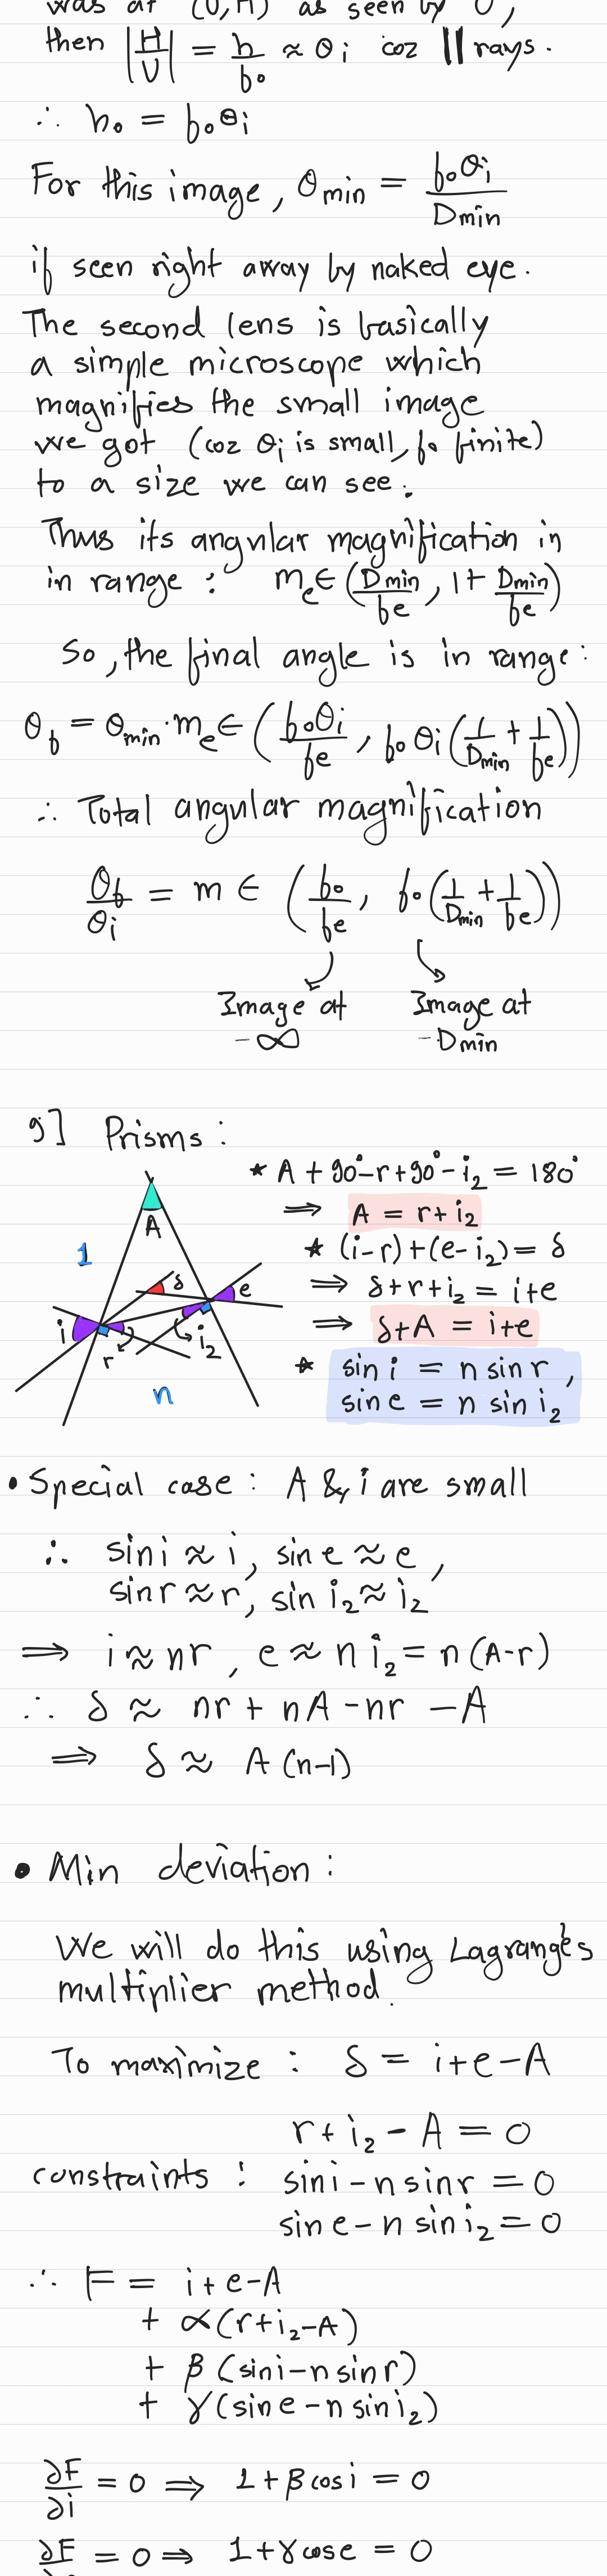 was at (U,H) as seen by O,
then |H/U| = h/f₀ ≈ θi coz || rays.
∴ h₀ = f₀θi
For this image, θmin = f₀θi/Dmin
if seen right away by naked eye.
The second lens is basically
a simple microscope which
magnifies the small image
we got (coz θi is small, f₀ finite)
to a size we can see.
Thus its angular magnification in
in range : me ∈ (Dmin/fe, 1 + Dmin/fe)
So, the final angle is in range:
θf = θmin·me ∈ (f₀θi/fe, f₀θi(1/Dmin + 1/fe))
∴ Total angular magnification
θf/θi = m ∈ (f₀/fe, f₀(1/Dmin + 1/fe))
Image at
-∞
Image at
-Dmin
9] Prisms :
A
1
δ
e
i
r
i₂
n
* A + 90°-r + 90°-i₂ = 180°
⇒ A = r + i₂
* (i-r) + (e-i₂) = δ
⇒ δ + r + i₂ = i + e
⇒ δ + A = i + e
* sin i = n sin r,
sin e = n sin i₂
• Special case : A & i are small
∴ sin i ≈ i, sin e ≈ e,
sin r ≈ r, sin i₂ ≈ i₂
⇒ i ≈ nr, e ≈ n i₂ = n(A-r)
∴ δ ≈ nr + nA - nr - A
⇒ δ ≈ A(n-1)
• Min deviation :
We will do this using Lagrange's
multiplier method.
To maximize : δ = i + e - A
r + i₂ - A = 0
constraints : sin i - n sin r = 0
sin e - n sin i₂ = 0
∴ F = i + e - A
+ α(r + i₂ - A)
+ β(sin i - n sin r)
+ γ(sin e - n sin i₂)
∂F/∂i = 0 ⇒ 1 + β cos i = 0
∂F = 0 ⇒ 1 + γ cos e = 0